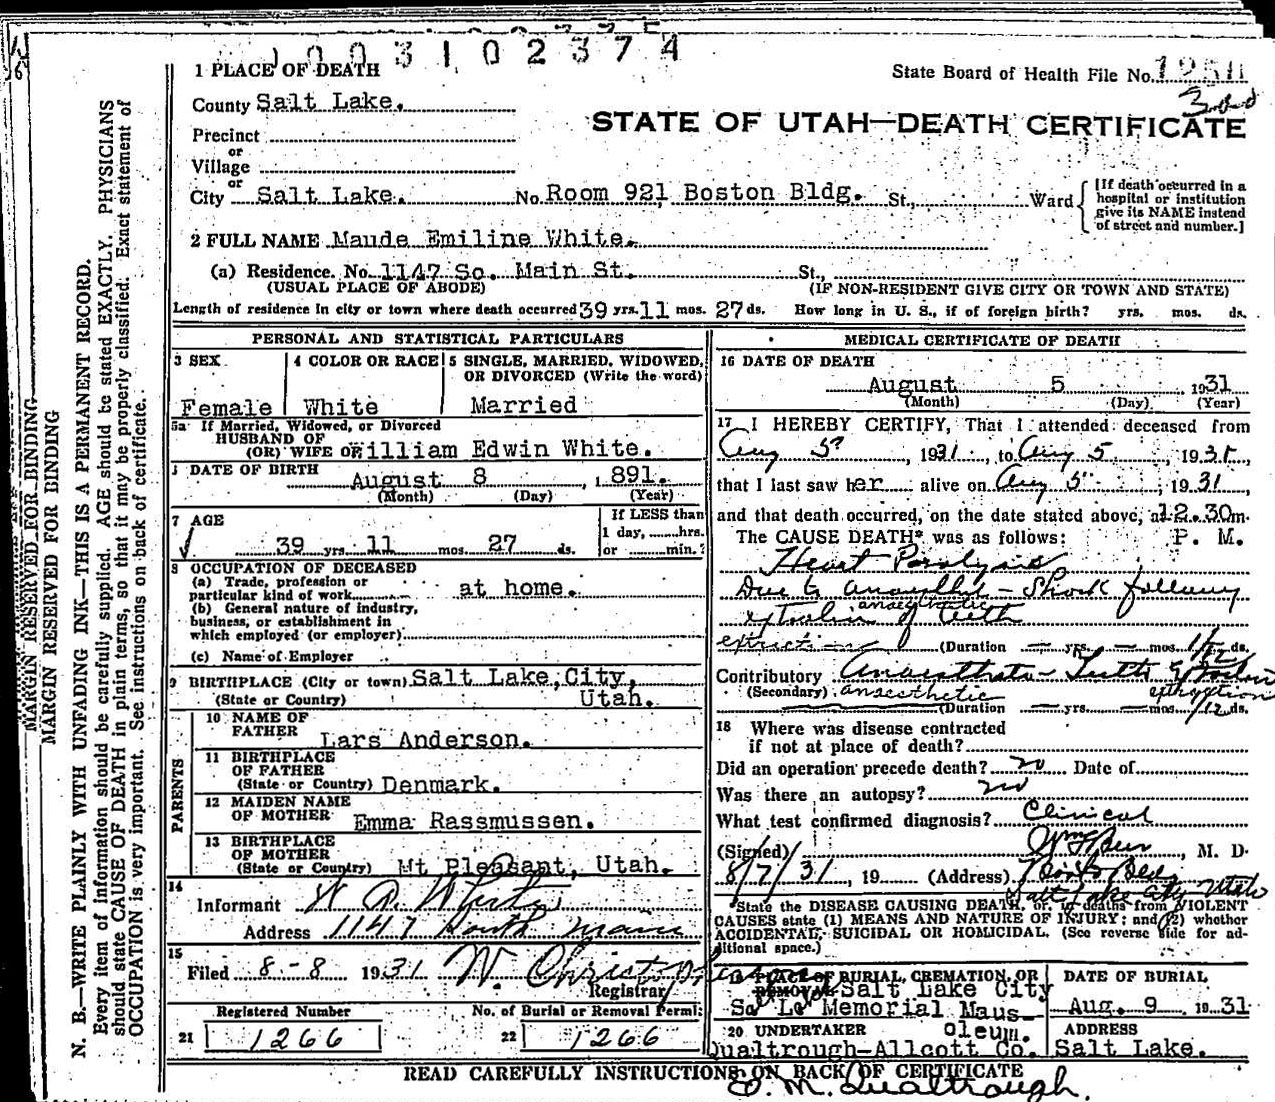 1003102374
1 PLACE OF DEATH
State Board of Health File No. 1250
County Salt Lake.
3rd
STATE OF UTAH—DEATH CERTIFICATE
Precinct
or
Village
or
City Salt Lake. No. Room 921 Boston Bldg. St., Ward
[If death occurred in a hospital or institution give its NAME instead of street and number.]
2 FULL NAME Maude Emiline White.
(a) Residence. No. 1147 So. Main St. St.,
(USUAL PLACE OF ABODE) (IF NON-RESIDENT GIVE CITY OR TOWN AND STATE)
Length of residence in city or town where death occurred 39 yrs. 11 mos. 27 ds. How long in U. S., if of foreign birth? yrs. mos. ds.
PERSONAL AND STATISTICAL PARTICULARS
3 SEX
Female
4 COLOR OR RACE
White
5 SINGLE, MARRIED, WIDOWED,
OR DIVORCED (Write the word)
Married
5a If Married, Widowed, or Divorced
HUSBAND OF
(OR) WIFE OF William Edwin White.
DATE OF BIRTH August 8, 1891.
(Month) (Day) (Year)
7 AGE
39 yrs. 11 mos. 27 ds.
If LESS than
1 day, hrs.
or min.?
8 OCCUPATION OF DECEASED
(a) Trade, profession or
particular kind of work at home.
(b) General nature of industry,
business, or establishment in
which employed (or employer)
(c) Name of Employer
9 BIRTHPLACE (City or town) Salt Lake City,
(State or Country) Utah.
PARENTS
10 NAME OF
FATHER Lars Anderson.
11 BIRTHPLACE
OF FATHER
(State or Country) Denmark.
12 MAIDEN NAME
OF MOTHER Emma Rassmussen.
13 BIRTHPLACE
OF MOTHER
(State or Country) Mt Pleasant, Utah.
14
Informant
Address 1147 South Main
15
Filed 8-8 1931 W. Christopherson
Registrar
Registered Number
21 1266
No. of Burial or Removal Permit
22 1266
MEDICAL CERTIFICATE OF DEATH
16 DATE OF DEATH
August 5 1931
(Month) (Day) (Year)
17 I HEREBY CERTIFY, That I attended deceased from
Aug 5, 1931, to Aug 5, 1931,
that I last saw her alive on Aug 5, 1931,
and that death occurred, on the date stated above, at 12.30m.
The CAUSE DEATH* was as follows: P. M.
Heart Paralysis
Due to Shock following
anaesthetic
of teeth
extraction (Duration yrs. mos. 1/12 ds.
Contributory
(Secondary) anaesthetic extraction
(Duration yrs. mos. 1/12 ds.
18 Where was disease contracted
if not at place of death?
Did an operation precede death? no Date of
Was there an autopsy? no
What test confirmed diagnosis? Clinical
(Signed), M. D.
8/7/31, 19 (Address)
Salt Lake City Utah
*State the DISEASE CAUSING DEATH, or, in deaths from VIOLENT
CAUSES state (1) MEANS AND NATURE OF INJURY; and (2) whether
ACCIDENTAL, SUICIDAL OR HOMICIDAL. (See reverse side for ad-
ditional space.)
19 PLACE OF BURIAL, CREMATION, OR
REMOVAL Salt Lake City
Salt Lake Memorial Maus-
oleum.
DATE OF BURIAL
Aug. 9 1931
20 UNDERTAKER
Qualtrough-Allcott Co.
ADDRESS
Salt Lake.
READ CAREFULLY INSTRUCTIONS ON BACK OF CERTIFICATE
E. M. Qualtrough.
MARGIN RESERVED FOR BINDING
MARGIN RESERVED FOR BINDING
N. B.—WRITE PLAINLY WITH UNFADING INK—THIS IS A PERMANENT RECORD.
Every item of information should be carefully supplied. AGE should be stated EXACTLY. PHYSICIANS
should state CAUSE OF DEATH in plain terms, so that it may be properly classified. Exact statement of
OCCUPATION is very important. See instructions on back of certificate.